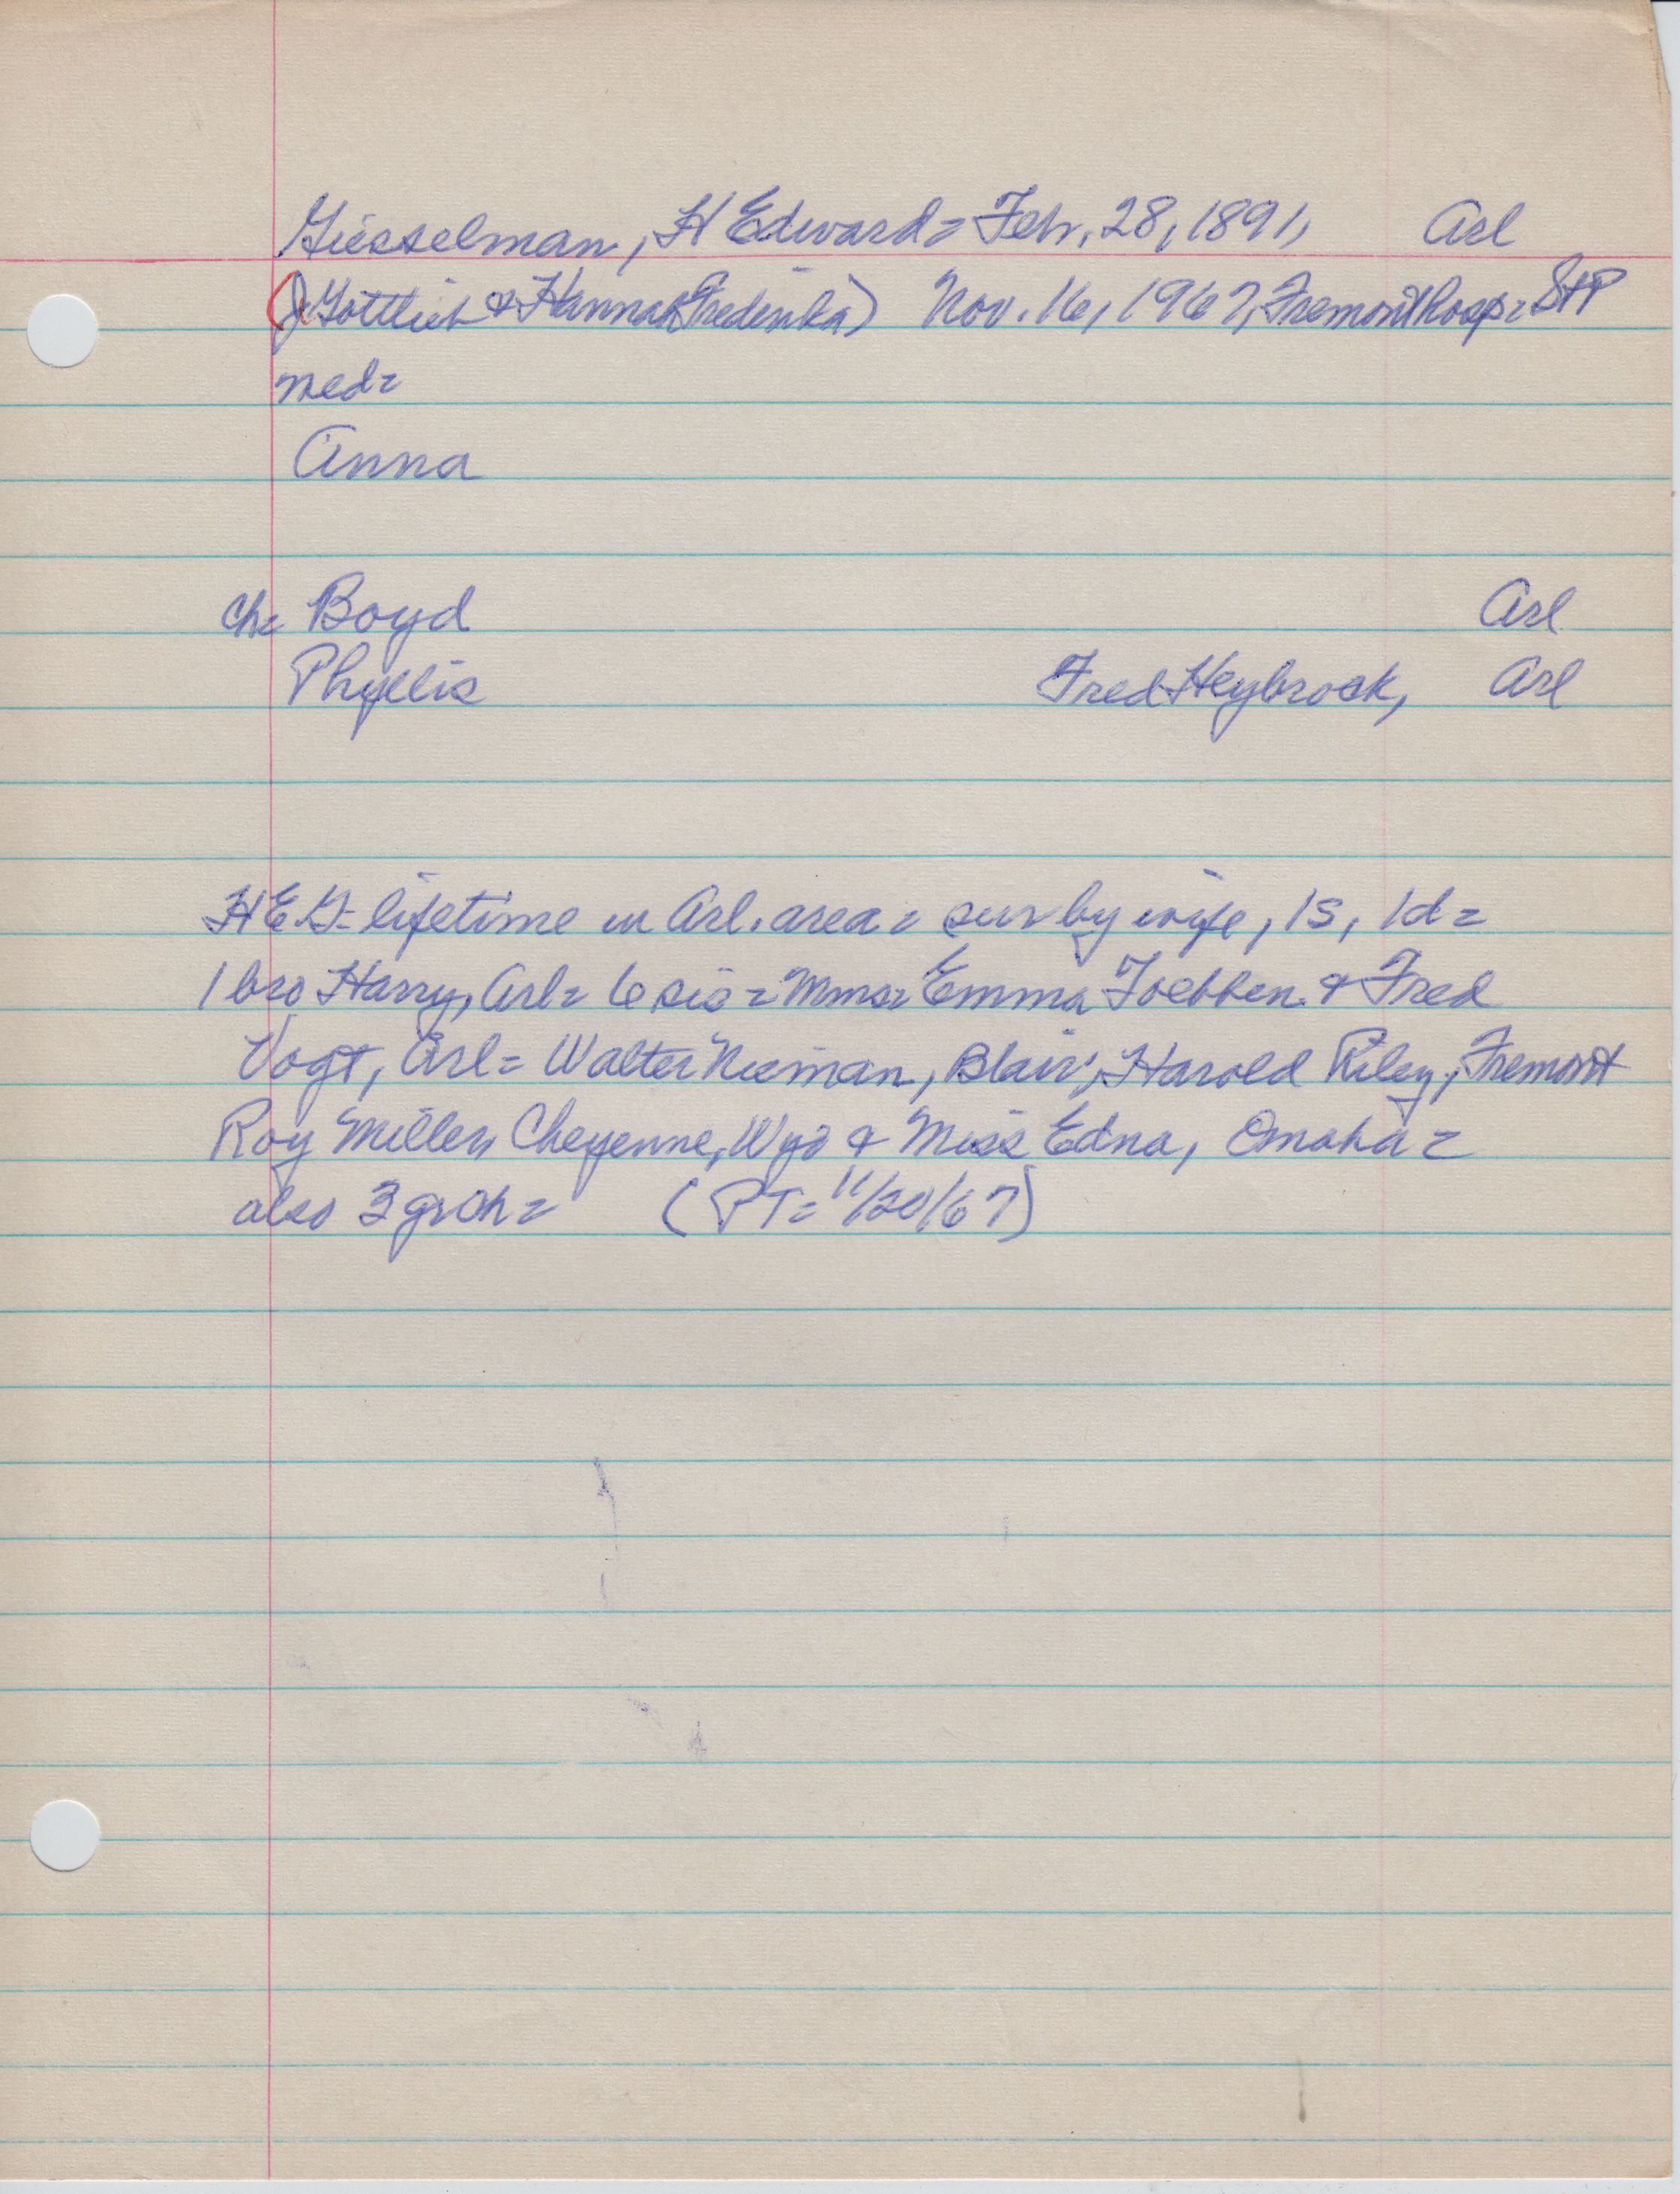 Giesselman, H Edward= Febr. 28, 1891, Arl
(J Gottlieb & Hannah Fredericka) Nov. 16, 1967, Fremont hosp= StP
med=
Anna
ch= Boyd Arl
Phyllis Fred Heybrock, Arl
HEG- lifetime in Arl. area= surv by wife, 1s, 1d=
1 bro Harry, Arl= 6 sis= Mmes= Emma Toebben & Fred
Vogt, Arl= Walter Nieman, Blair; Harold Riley, Fremont
Roy Miller, Cheyenne, Wyo & Miss Edna, Omaha=
also 3 grch= (PT= 11/20/67)